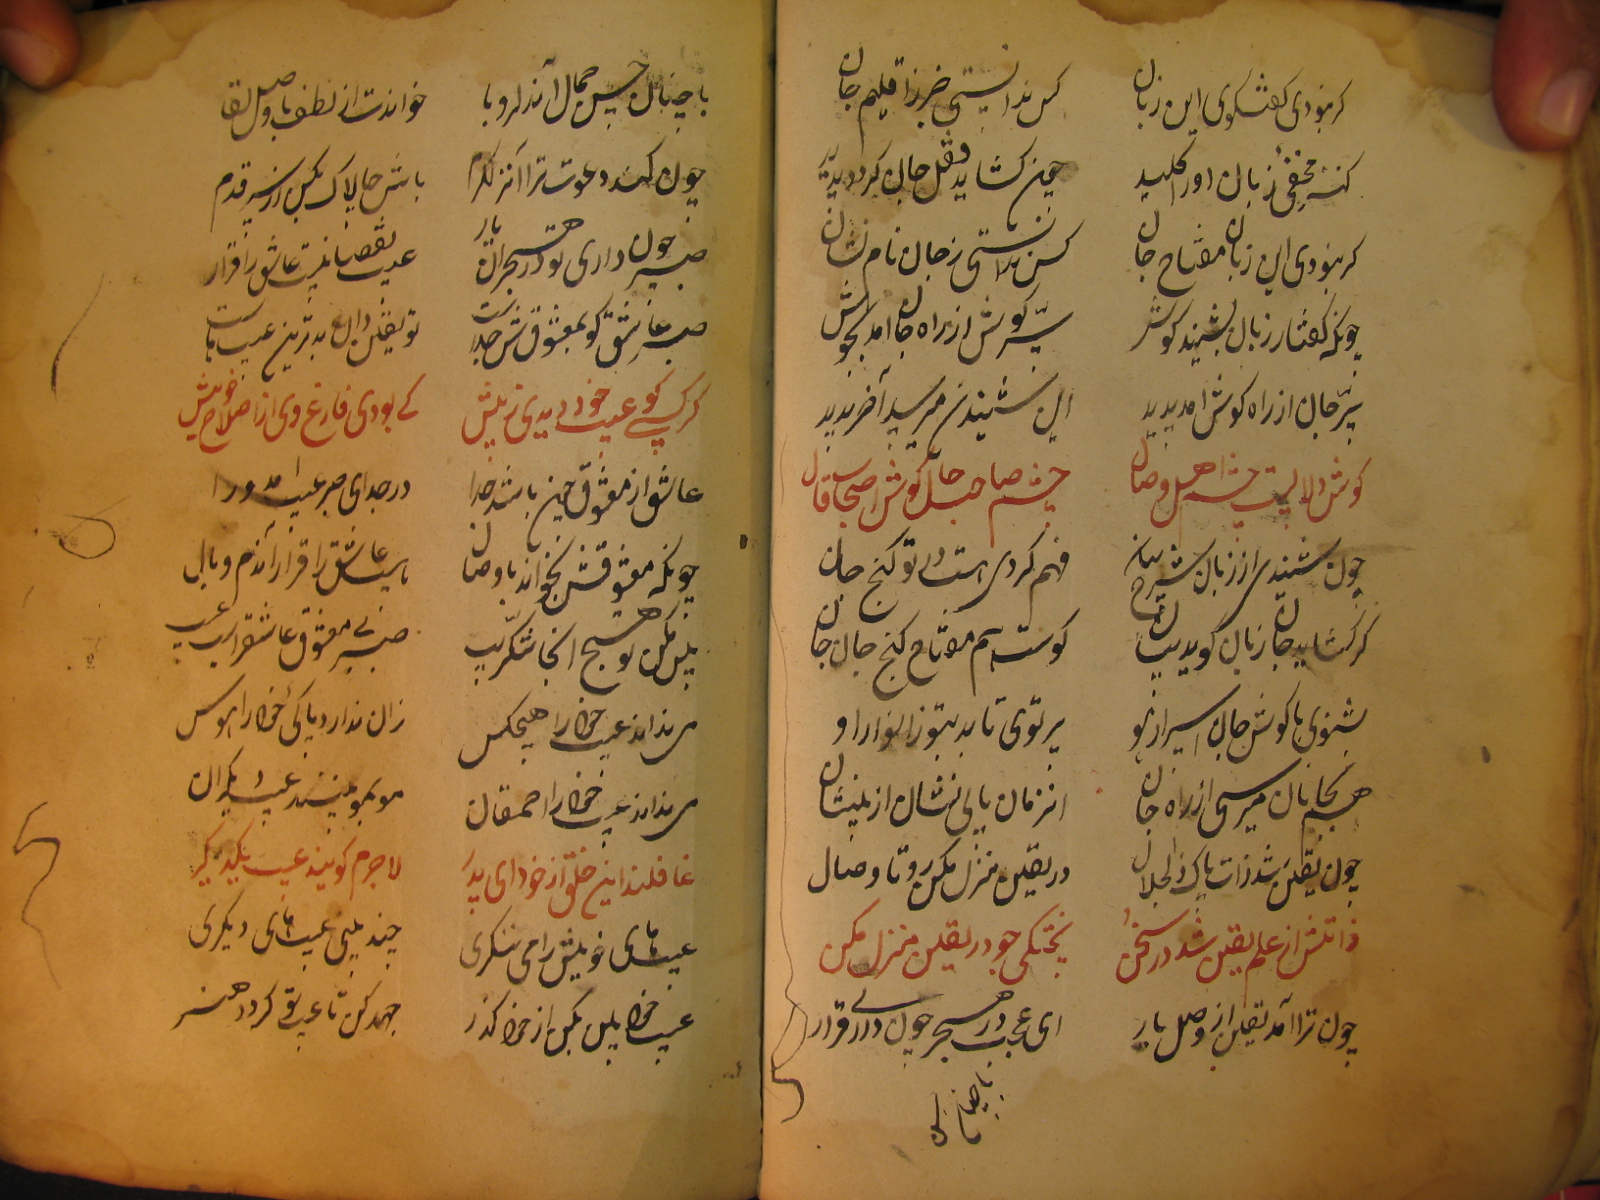 کر نبودی کفتکوی این زبان کس ندانستی خبر ز اقلیم جان
کنه مخفی زبان اورا کلید چون کشاید قفل جان کردد پدید
کر نبودی این زبان مفتاح جان کس ندانستی ز جان نام نشان
چونکه کفتار زبان بشنید کوش سر کوش از راه جان امد بجوش
سر جان از راه کوش امد پدید این شنیدن میرسد آخر بدید
کوش دلالست چشم اهل وصال چشم صاحب حال کوش اصحاب قال
چون شنیدی از زبان شرح بیان فهم کردی هست دل تو کنج جان
کر کشاید جان زبان کوید بیان کوست هم مفتاح کنج جان جان
بشنوی با کوش جان اسرار هو پرتوی تابد بتو ز انوار او
هم بجانان میرسی از راه جان انزمان یابی نشان از بینشان
چون یقین شد ذات پاک ذوالجلال در یقین منزل مکن رو تا وصال
ذاتش از علم یقین شد در سخن پختکی جو در یقین منزل مکن
چون ترا آمد یقین از وصل یار ای عجب در هجر چون داری قرار
با چنان حسن جمال آن دلربا خواندت از لطف با وصل لقا
چون کند دعوت ترا آنز کرم باش چالاک بکن از سر قدم
صبر چون داری تو در هجران یار عیب نقصانیست عاشق را قرار
صبر عاشق کو بمعشوقش جداست تو یقین دان بدترین عیب هاست
کر کسی کو عیب خود دیدی ز پیش کی بودی فارغ وی از اصلاح خویش
عاشق از معشوق چون باشد جدا در جدای صبر عیب امد ورا
چونکه معشوقش بخواند با وصال عاشق را قرار آندم وبال
پس مکن تو هیچ انجا شکیب صبر بی معشوق عاشقراست عیب
می نداند عیب خود را هیچکس زان ندارد پاکی خود را هوس
می نداند عیب خود را احمقان مو بمو بینند عیب دیکران
غافلند این خلق از خود ای پدر لاجرم کویند عیب یکدیکر
عیبهای خویش را می ننکری چند بینی عیبهای دیکری
عیب خود بین بکن از خود کذر جهد کن تا عیب تو کردد هنر
با چنان